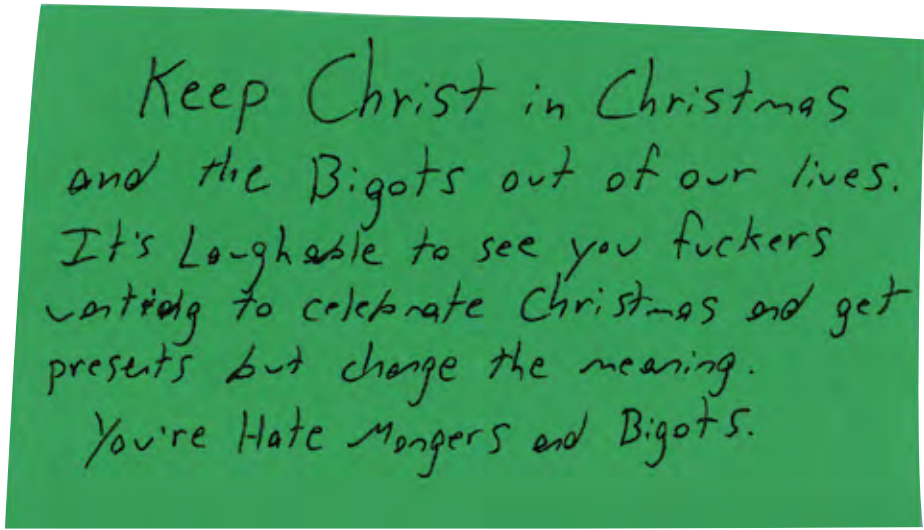 Keep Christ in Christmas
and the Bigots out of our lives.
It's Laughable to see you fuckers
wanting to celebrate Christmas and get
presents but change the meaning.
You're Hate Mongers and Bigots.